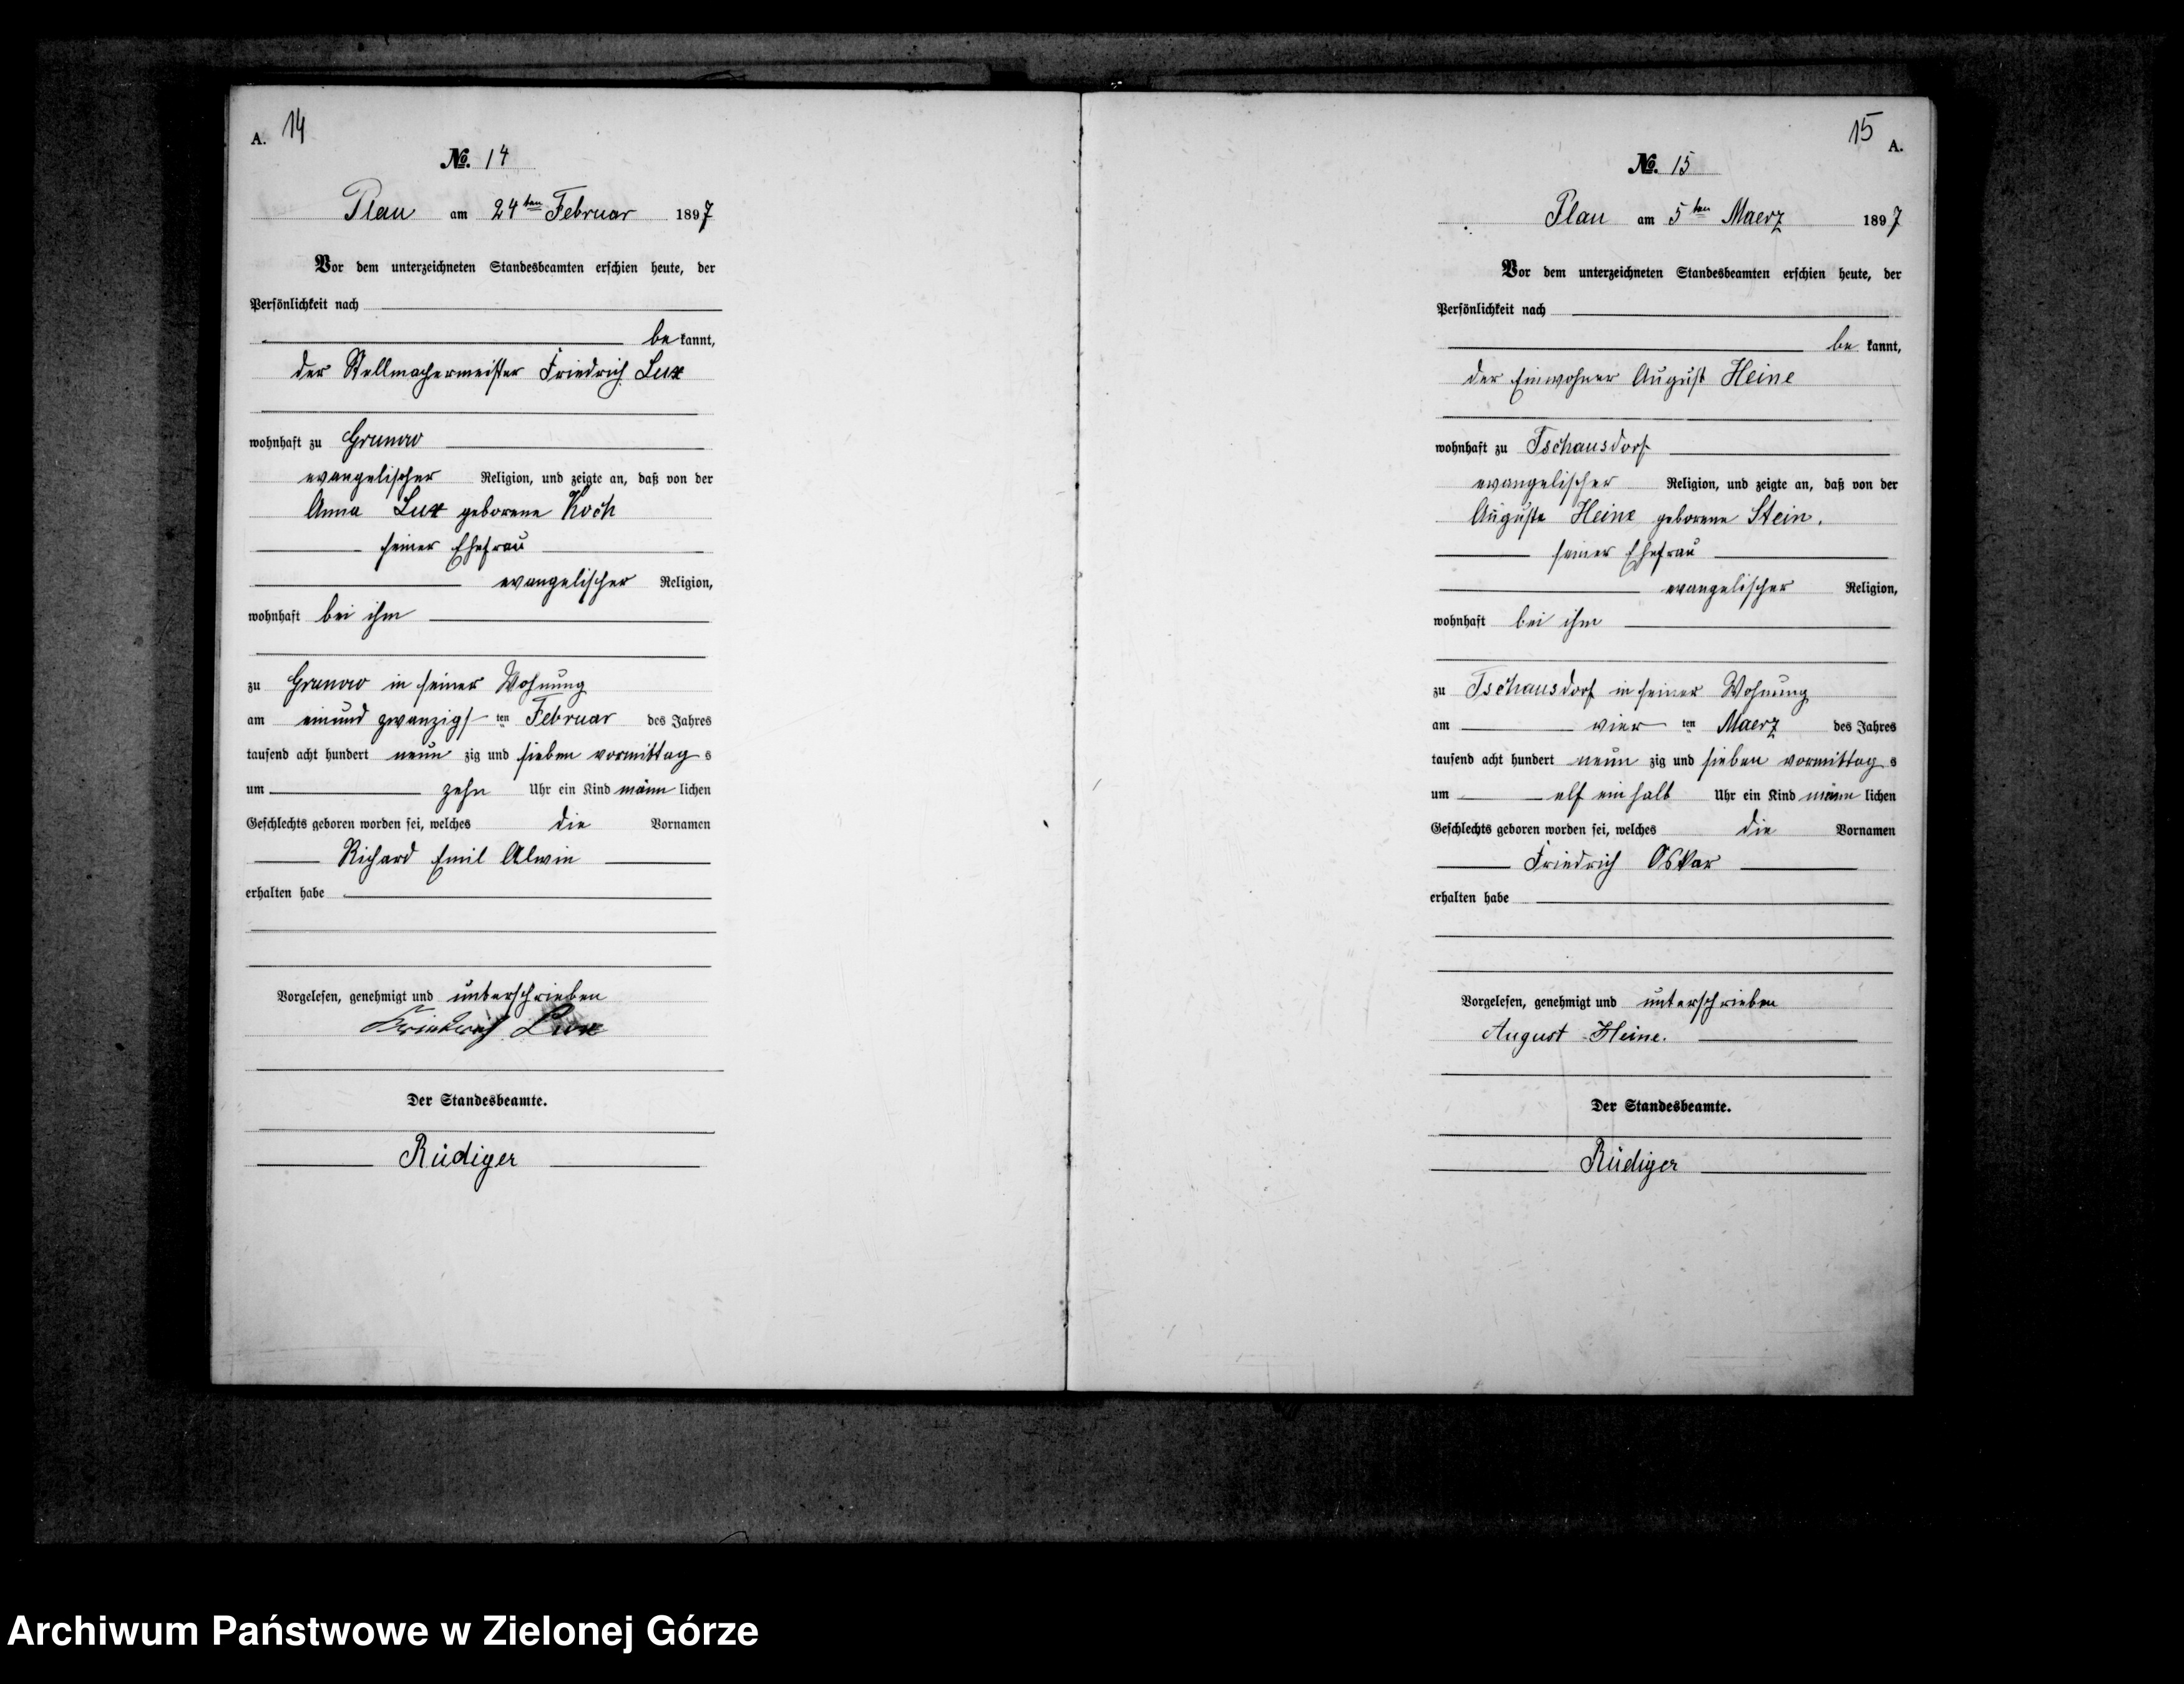 A. 14
No. 14
Plau am 24ten Februar 1897
Vor dem unterzeichneten Standesbeamten erschien heute, der
Persönlichkeit nach
be kannt,
der Stellmachermeister Friedrich Lux
wohnhaft zu Grunow
evangelischer Religion, und zeigte an, daß von der
Anna Lux geborene Koch
seiner Ehefrau
evangelischer Religion,
wohnhaft bei ihm
zu Grunow in seiner Wohnung
am einund zwanzigs ten Februar des Jahres
tausend acht hundert neun zig und sieben vormittag s
um zehn Uhr ein Kind männ lichen
Geschlechts geboren worden sei, welches die Vornamen
Richard Emil Alwin
erhalten habe
Vorgelesen, genehmigt und unterschrieben
Friedrich Lux
Der Standesbeamte.
Rüdiger
15 A.
No. 15
Plau am 5ten Maerz 1897
Vor dem unterzeichneten Standesbeamten erschien heute, der
Persönlichkeit nach
be kannt,
der Einwohner August Heine
wohnhaft zu Tschausdorf
evangelischer Religion, und zeigte an, daß von der
Auguste Heine geborene Stein.
seiner Ehefrau
evangelischer Religion,
wohnhaft bei ihm
zu Tschausdorf in seiner Wohnung
am vier ten Maerz des Jahres
tausend acht hundert neun zig und sieben vormittag s
um elf ein halb Uhr ein Kind männ lichen
Geschlechts geboren worden sei, welches die Vornamen
Friedrich Oskar
erhalten habe
Vorgelesen, genehmigt und unterschrieben
August Heine.
Der Standesbeamte.
Rüdiger
Archiwum Państwowe w Zielonej Górze